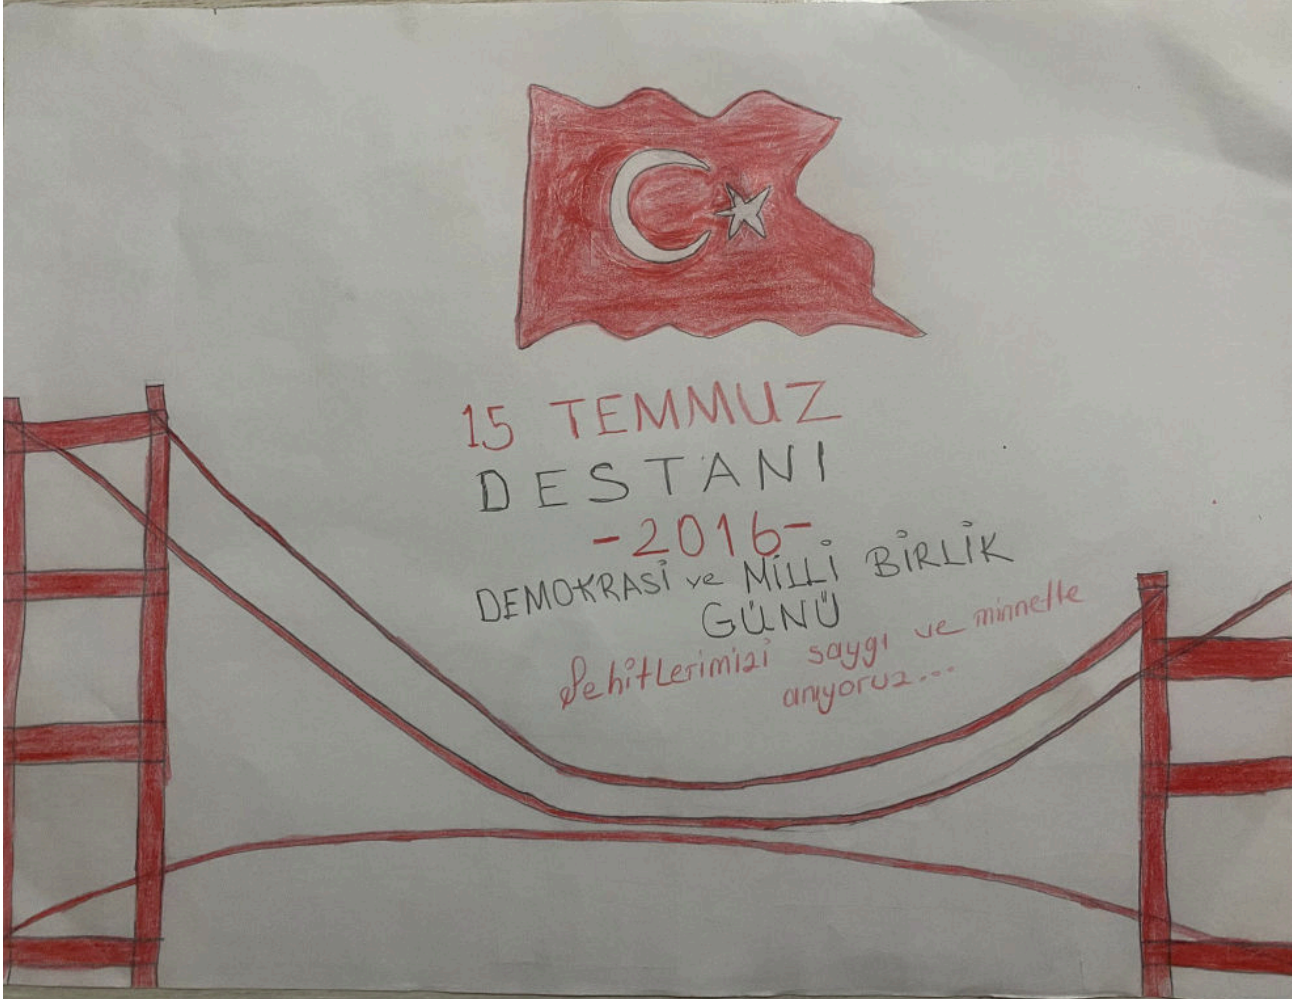 15 TEMMUZ
DESTANI
-2016-
DEMOKRASİ ve MİLLİ BİRLİK
GÜNÜ
Şehitlerimizi saygı ve minnetle
anıyoruz...